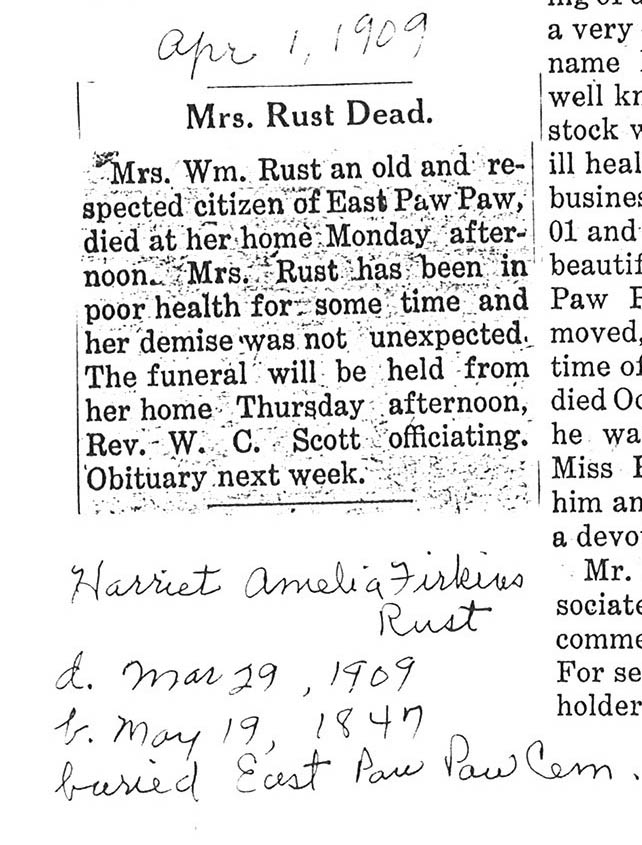 Apr 1, 1909
Mrs. Rust Dead.
Mrs. Wm. Rust an old and re-
spected citizen of East Paw Paw,
died at her home Monday after-
noon. Mrs. Rust has been in
poor health for some time and
her demise was not unexpected.
The funeral will be held from
her home Thursday afternoon,
Rev. W. C. Scott officiating.
Obituary next week.
Harriet Amelia Firkins
Rust
d. Mar 29, 1909
b. May 19, 1847
buried East Paw Paw Cem.
a very
name
well
stock
ill
01 and
Paw
moved,
time
died
he
Miss
him
Mr.
For
holder